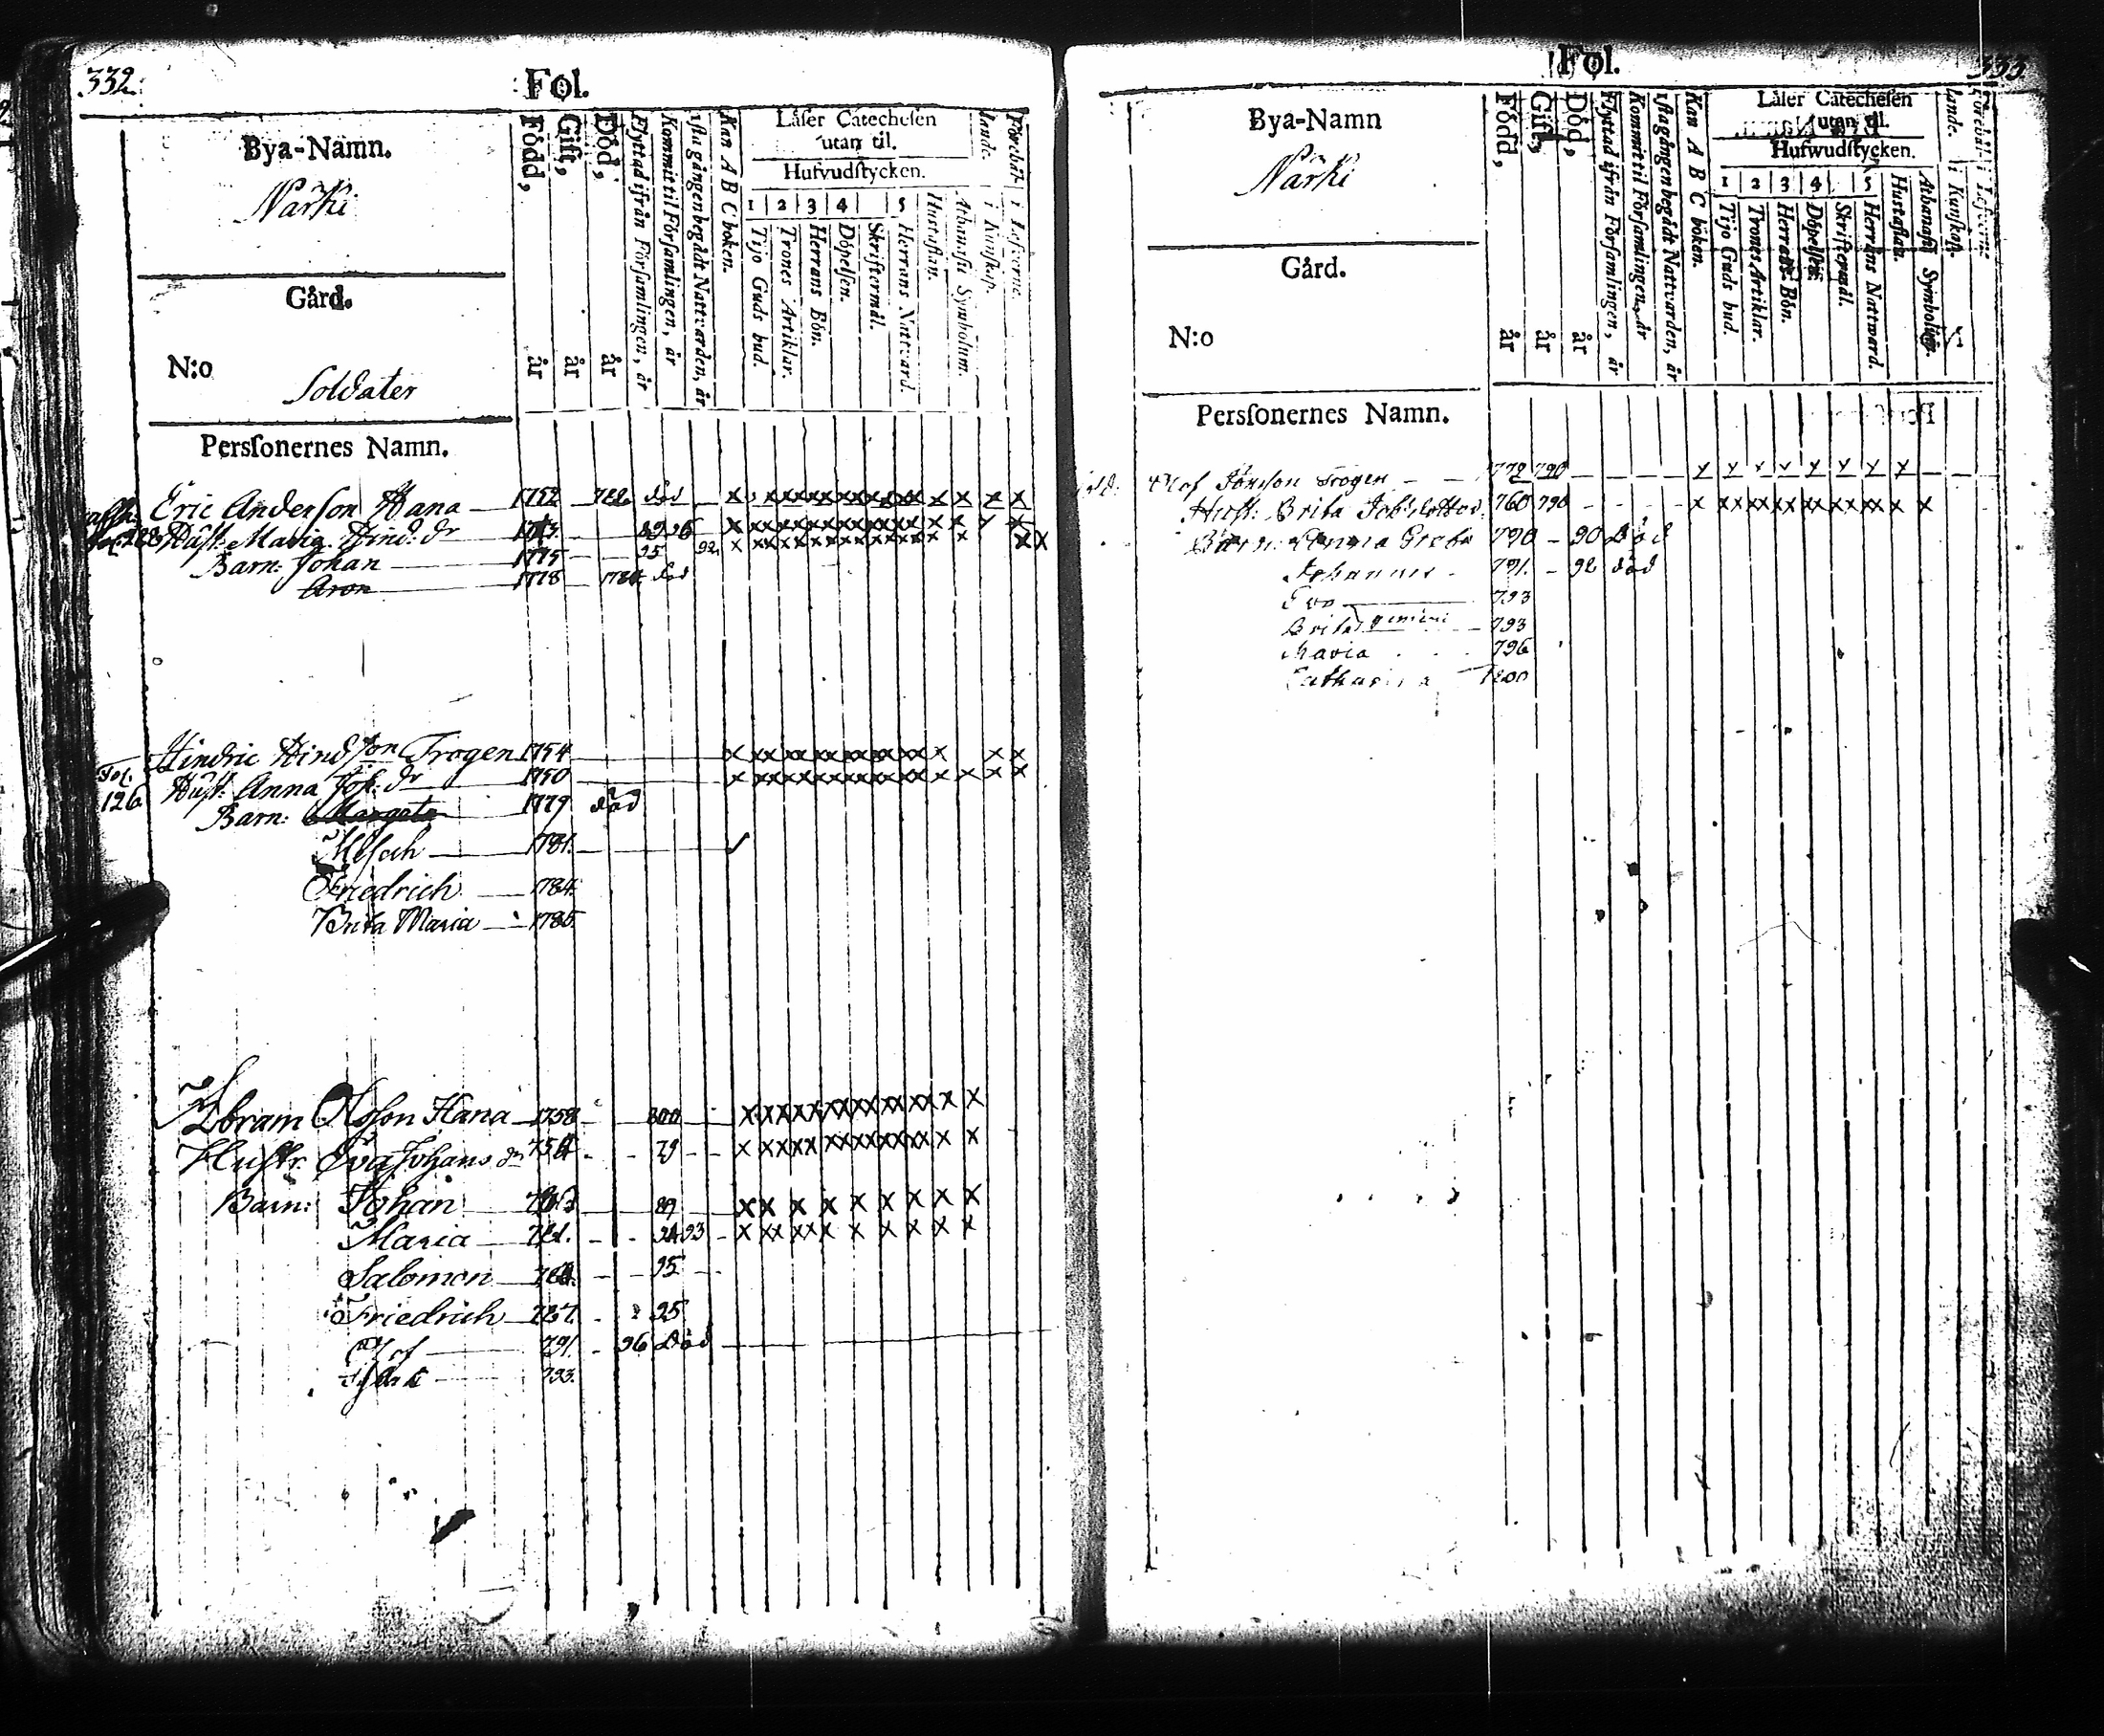 332.
Fol.
Bya-Namn.
Närki
Gård.
N:o
Soldater
Perſonernes Namn.
Född, år
Gift, år
Död, år
Flyttad ifrån Förſamlingen, år
Kommit til Förſamlingen, år
1ſta gången begådt Nattvarden, år
Kan A B C boken.
Låſer Catecheſen
utan til.
Hufvudſtycken.
1 2 3 4 5
Tijo Guds bud.
Trones Artiklar.
Herrans Bön.
Döpelſen.
Skriftermål.
Herrans Nattvard.
Hustaflan.
Athanaſii Symbolum.
i Kunſkap.
i Lefverne.
Eric Anderſon Hana 1752 782 död
Huſt. Maria Hind. dr
Barn: Johan 1775 25 92
Aron 1778 död
Hindric Hindſon Trogen 1754
Fol. 126 Huſt. Anna Joh. dr 1750
Barn: Margeta 1779 död
Meſach 1781.
Friedrich 1784.
Brita Maria 1785
Abram Olofſon Hana 1758 800
Huſtr. Eva Johans dr 79
Barn: Johan 89
Maria 93
Salomon 95
Friedrich 787. 95
Olof 791. 96 död
793.
Fol.
333
Bya-Namn
Närki
Gård.
N:o
Perſonernes Namn.
Född, år
Gift, år
Död, år
Flyttad ifrån Förſamlingen, år
Kommit til Förſamlingen, år
1ſta gången begådt Nattvarden, år
Kan A B C boken.
Låſer Catecheſen
utan til.
Hufwudſtycken.
1 2 3 4 5
Tijo Guds bud.
Trones Artiklar.
Herrans Bön.
Döpelſen.
Skriftermål.
Herrans Nattward.
Huſtaflan.
Athanaſii Symbolum.
i Kunſkap.
i Lefverne.
Olof Jönſson Trogen 772 790
Huſt: Brita 760 790
Barn: Anna Greta 790 90 död
Johannes 791. 92 död
Eva 793
Brita gemini 793
Maria 796
Catharina 1800